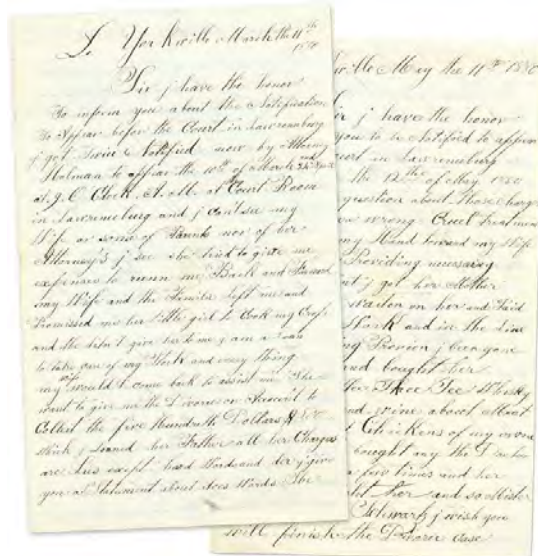 Yorkville March the 11th
1880
Sir j have the honor
To inform you about the Notification
To Appear befor the Court in Lawrenceburg
j got Twice Notified now by Attorney
to appear the 10th of March
at Court Room
in Lawrenceburg and j can't see my
Wife or some of nor of her
Attorney's j see she tried to give me
expenses to runn me Back and Forward
my Wife and the Familie left me and
Promissed me her little girl to Cook my Crops
and she didn't give her to me j am a
to take care of my Stock and every thing
my wife would come back to assist me She
want to give me the Divorce on Account to
Collect the five Hundreth Dollars
which j loaned her Father all her Charges
are Lies except hard Words and j give
you a Statement about does Words She
ville May the 11th 1880
j have the honor
you to be Notified to appear
in Lawrenceburg
the 12th of May 1880
question about those Charges
wrong Cruel treatment
my Hand toward my Wife
Providing necessary
j got her Mother
on her and Paid
and in the Line
j been gone
and bought her
Whisky
and wine about
Chickens of my own
bought any the
a few times and her
her and so Mister
Schwartz j wish you
will finish the Divorce Case